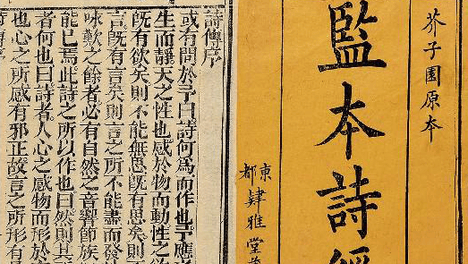 芥子園原本
監本詩經
東都肄雅堂
詩傳序
或有問於予曰詩何為而作也予應
生而靜天之性也感於物而動性之欲
既有欲矣則不能無思既有思矣則不
言既有言矣則言之所不能盡而發
咏歎之餘者必有自然之音響節族
能已焉此詩之所以作也曰然則其
者何也曰詩者人心之感物而形於
也心之所感有邪正故言之所形有